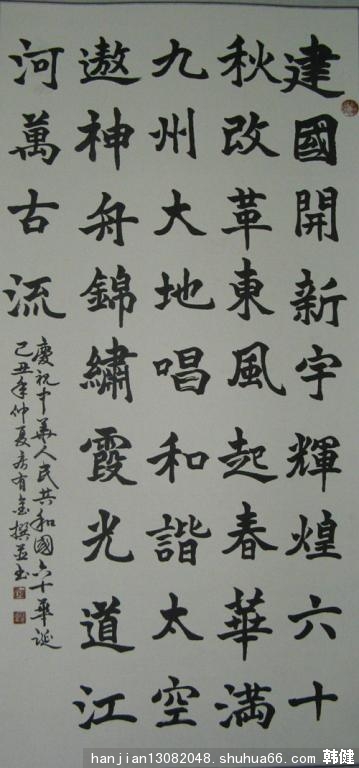 建國開新宇輝煌六十
秋改革東風起春華滿
九州大地唱和諧太空
遨神舟錦繡霞光道江
河萬古流
慶祝中華人民共和國六十華誕
己丑年仲夏有金撰並書
hanjian13082048.shuhua66.com 韩健